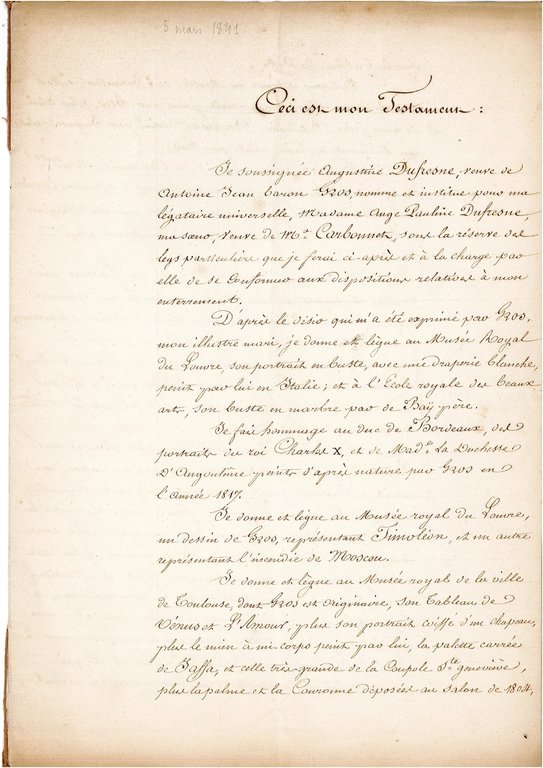 5 mars 1841
Ceci est mon Testament :
Je soussignée Augustine Dufresne, veuve de
Antoine Jean baron Gros, nomme et institue pour ma
légataire universelle, Madame Ange Pauline Dufresne,
ma sœur, veuve de Mr. Carbonnet, sous la réserve des
legs particuliers que je ferai ci-après et à la charge par
elle de se conformer aux dispositions relatives à mon
enterrement.
D'après le désir qui m'a été exprimé par Gros,
mon illustre mari, je donne et lègue au Musée Royal
du Louvre, son portrait en buste, avec une draperie blanche,
peint par lui en Italie ; et à l'École royale des beaux
arts, son buste en marbre par de Baÿ père.
Je fais hommage au duc de Bordeaux, des
portraits du roi Charles X, et de Made. La Duchesse
D'Angoulême peints d'après nature par Gros en
l'Année 1817.
Je donne et lègue au Musée royal du Louvre,
un dessin de Gros, représentant Timoléon, et un autre
représentant l'incendie de Moscou.
Je donne et lègue au Musée royal de la ville
de Toulouse, dont Gros est originaire, son Tableau de
Vénus et L'Amour, plus son portrait coiffé d'un chapeau,
plus le mien à mi-corps peint par lui, la palette carrée
de Jaffa, et celle très grande de la Coupole Ste. geneviève,
plus la palme et la Couronne déposées au salon de 1804,